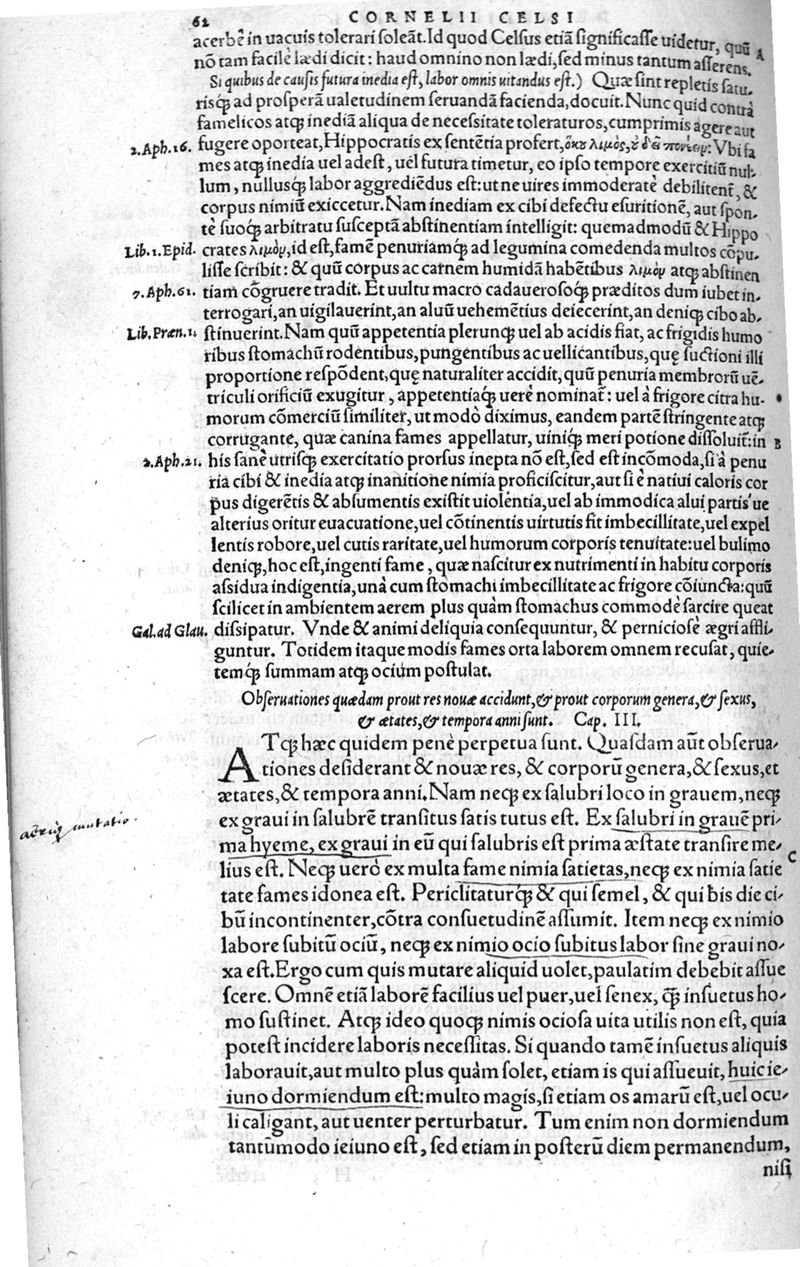 62 CORNELII CELSI
acerbè in uacuis tolerari soleāt. Id quod Celsus etiā significasse uidetur, quū
nō tam facilè lædi dicit: haud omnino non lædi, sed minus tantum asserens. A
Si quibus de causis futura inedia est, labor omnis uitandus est.) Quæ sint repletis satu-
risq; ad prosperā ualetudinem seruandā facienda, docuit. Nunc quid contrà
famelicos atq; inediā aliqua de necessitate toleraturos, cumprimis agere aut
2. Aph. 16. fugere oporteat, Hippocratis ex sentētia profert, ὅκου λιμὸς, ȣ̓ δεῖ πονέειν: Vbi fa
mes atq; inedia uel adest, uel futura timetur, eo ipso tempore exercitiū nul-
lum, nullusq; labor aggrediēdus est: ut ne uires immoderatè debilitent̄, &
corpus nimiū exiccetur. Nam inediam ex cibi defectu esuritionē, aut spon-
tè suoq; arbitratu susceptā abstinentiam intelligit: quemadmodū & Hippo
Lib. 1. Epid. crates λιμὸν, id est, famē penuriamq; ad legumina comedenda multos cōpu-
lisse scribit: & quū corpus ac carnem humidā habētibus λιμὸν atq; abstinen
7. Aph. 61. tiam cōgruere tradit. Et uultu macro cadauerosoq; præditos dum iubet in-
terrogari, an uigilauerint, an aluū uehemētius deiecerint, an deniq; cibo ab-
Lib. Præn. 1. stinuerint. Nam quū appetentia plerunq; uel ab acidis fiat, ac frigidis humo
ribus stomachū rodentibus, pungentibus ac uellicantibus, quę suctioni illi
proportione respōdent, quę naturaliter accidit, quū penuria membrorū uē-
triculi orificiū exugitur, appetentiaq; uerè nominat̄: uel à frigore citra hu-
morum cōmerciū similiter, ut modò diximus, eandem partē stringente atq;
corrugante, quæ canina fames appellatur, uiniq; meri potione dissoluit̄: in B
2. Aph. 21. his sanè utrisq; exercitatio prorsus inepta nō est, sed est incōmoda, si à penu
ria cibi & inedia atq; inanitione nimia proficiscitur, aut si è natiui caloris cor
pus digerētis & absumentis existit uiolentia, uel ab immodica alui partis'ue
alterius oritur euacuatione, uel cōtinentis uirtutis fit imbecillitate, uel expel
lentis robore, uel cutis raritate, uel humorum corporis tenuitate: uel bulimo
deniq;, hoc est, ingenti fame, quæ nascitur ex nutrimenti in habitu corporis
assidua indigentia, unà cum stomachi imbecillitate ac frigore cōiuncta: quū
scilicet in ambientem aerem plus quàm stomachus commodè sarcire queat
Gal. ad Glau. dissipatur. Vnde & animi deliquia consequuntur, & perniciosè ægri affli-
guntur. Totidem itaque modis fames orta laborem omnem recusat, quie-
temq; summam atq; ocium postulat.
Obseruationes quædam prout res nouæ accidunt, & prout corporum genera, & sexus,
& ætates, & tempora anni sunt. Cap. III.
ATq; hæc quidem penè perpetua sunt. Quasdam aūt obserua-
tiones desiderant & nouæ res, & corporū genera, & sexus, et
ætates, & tempora anni. Nam neq; ex salubri loco in grauem, neq;
aeris mutatio. ex graui in salubrē transitus satis tutus est. Ex salubri in grauē pri-
ma hyeme, ex graui in eū qui salubris est prima æstate transire me-
lius est. Neq; uerò ex multa fame nimia satietas, neq; ex nimia satie C
tate fames idonea est. Periclitaturq; & qui semel, & qui bis die ci-
bū incontinenter, cōtra consuetudinē assumit. Item neq; ex nimio
labore subitū ociū, neq; ex nimio ocio subitus labor sine graui no-
xa est. Ergo cum quis mutare aliquid uolet, paulatim debebit assue
scere. Omnē etiā laborē facilius uel puer, uel senex, q̄̃ insuetus ho-
mo sustinet. Atq; ideo quoq; nimis ociosa uita utilis non est, quia
potest incidere laboris necessitas. Si quando tamē insuetus aliquis
laborauit, aut multo plus quàm solet, etiam is qui assueuit, huic ie-
iuno dormiendum est: multo magis, si etiam os amarū est, uel ocu-
li caligant, aut uenter perturbatur. Tum enim non dormiendum
tantūmodo ieiuno est, sed etiam in posterū diem permanendum,
nisi